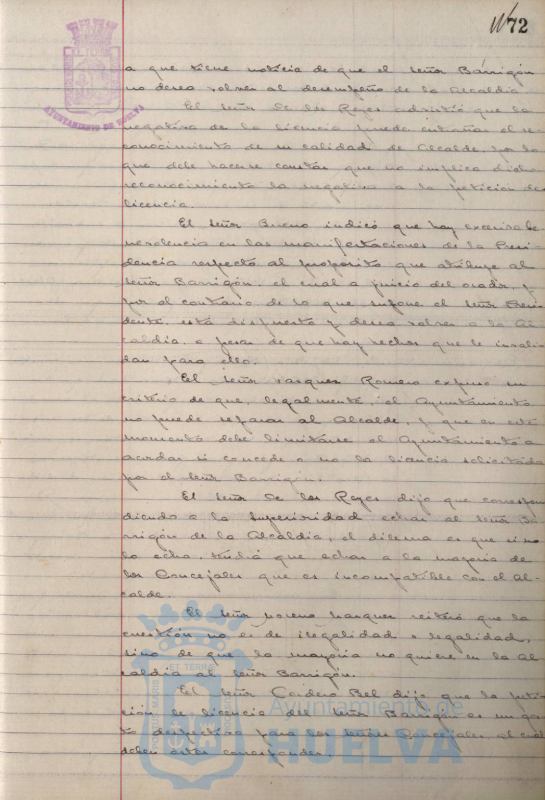 72
AYUNTAMIENTO DE HUELVA
a que tiene noticia de que el señor Barrigón
no desea volver al desempeño de la Alcaldía.
El señor De los Reyes advirtió que la
negativa de la licencia puede entrañar el re-
conocimiento de su calidad de Alcalde, por lo
que debe hacerse constar que no implica dicho
reconocimiento la negativa a la petición de
licencia.
El señor Bueno indicó que hay excesiva be-
nevolencia en las manifestaciones de la Presi-
dencia respecto al propósito que atribuye al
señor Barrigón, el cual a juicio del orador, y
por el contrario de lo que supone el señor Presi-
dente, está dispuesto y desea volver a la Al-
caldía, a pesar de que hay hechos que le invali-
dan para ello.
El señor Vazquez Romero expuso su
criterio de que, legalmente, el Ayuntamiento
no puede separar al Alcalde, y que en este
momento debe limitarse el Ayuntamiento a
acordar si concede o no la licencia solicitada
por el señor Barrigón.
El señor De los Reyes dijo que correspon-
diendo a la Superioridad echar al señor Ba-
rrigón de la Alcaldía, el dilema es que si no
lo echa, tendrá que echar a la mayoría de
los Concejales que es incompatible con el Al-
calde.
El señor Moreno Marquez reiteró que la
cuestión no es de ilegalidad o legalidad,
sino de que la mayoría no quiere en la Al-
caldía al señor Barrigón.
El señor Cordero Bel dijo que la peti-
ción de licencia del señor Barrigón es un ges-
to despectivo para los señores Concejales, al cual
deben estos corresponder.
Ayuntamiento de
HUELVA